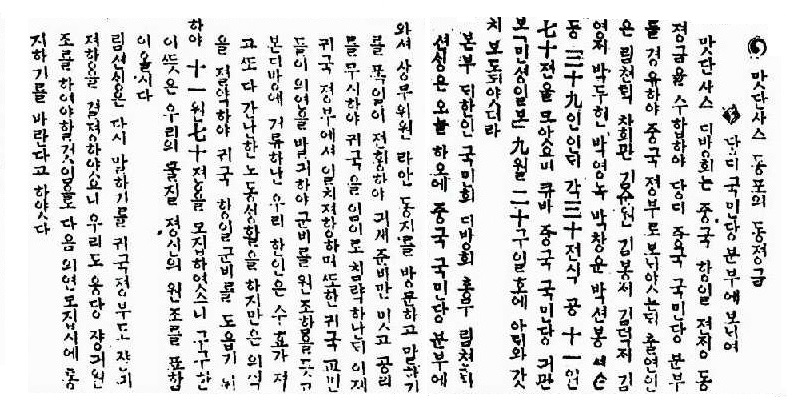 맛단사스 동포의 동정금
당디 국민당 분부에 보내여
맛단사스 디방회는 중국 항일 전징 동
정금을 수합하야 당디 중국 국민당 분부
를 경유하야 중국 정부로 보내앗는대 출연인
은 림천택 차회관 김봉서 김덕저 김
영저 박두현 박영녹 박창윤 박선봉
등 三十九인인대 각三十전식 공 十一원
七十전을 모앗쏘며 큐바 중국 국민당 긔관
보「민성일보」九월 二十구일호에 아래와 갓
치 보도되야스더라
본부 대한인 국민회 디방회 총무 림천택
선싱은 오늘 하오에 중국 국민당 분부에
와셔 상무위원 라안 동지를 방문하고 말하기
를 폭일이 전화하야 긔계 준비만 밋고 공리
를 무시하야 귀국을 임의로 침략하나니 이제
귀국 정부에서 일치저항하며 또한 귀국 교민
들이 의연을 발긔하야 군비를 원조함을 듯고
본디방에 거류하난 우리 한인은 수효가 저
고 또 다 간난한 노동싱활을 하지만은 의식
을 절약하야 귀국 항일군비를 도읍기 위
하야 十一원七十전을 모집하엿스니 구구한
이 뜻은 우리의 물질 정신의 원조를 표함
이올시다
림선싱은 다시 말하기를 귀국정부도 쟝긔
저항을 결정하얏으니 우리도 응당 쟝긔원
조를 하여야할것임으로 다음 의연모집시에 동
지하기를 바란다고 하얏다